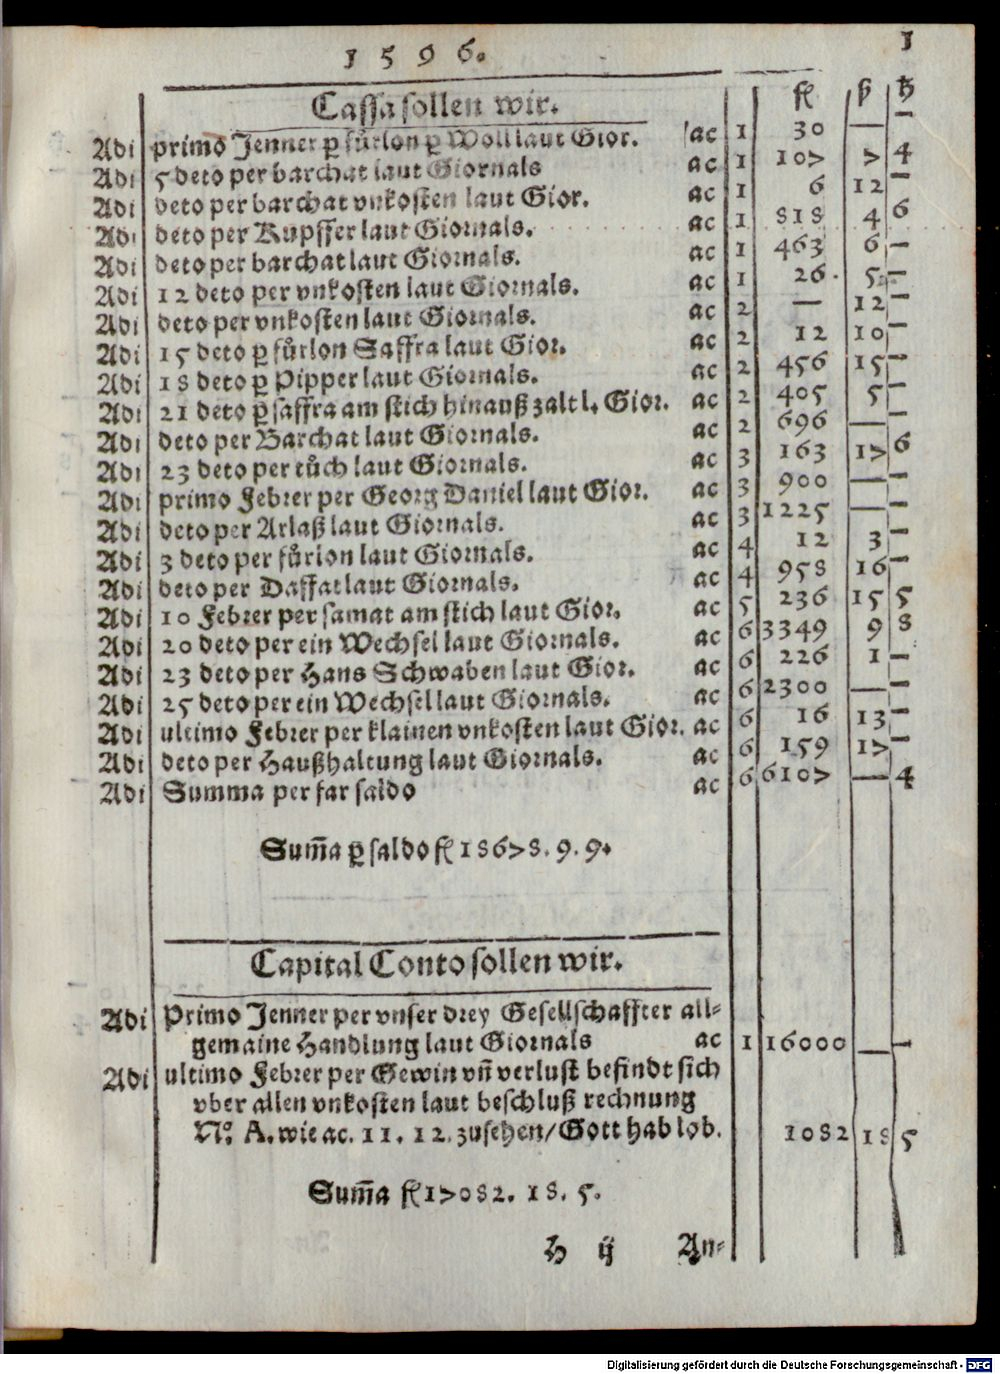 1 5 9 6.
1
Cassa sollen wir. fl ß ₰
Adi primo Jenner ꝑ fůrlon ꝑ Woll laut Gior. ac 1 30 — —
Adi 5 deto per barchat laut Giornals ac 1 107 7 4
Adi deto per barchat vnkosten laut Gior. ac 1 6 12 —
Adi deto per Kupffer laut Giornals. ac 1 818 4 6
Adi deto per barchat laut Giornals. ac 1 463 6 —
Adi 12 deto per vnkosten laut Giornals. ac 1 26 5 —
Adi deto per vnkosten laut Giornals. ac 2 — 12 —
Adi 15 deto ꝑ fůrlon Saffra laut Gior. ac 2 12 10 —
Adi 18 deto ꝑ Pipper laut Giornals. ac 2 456 15 —
Adi 21 deto ꝑ saffra am stich hinauß zalt l. Gior. ac 2 405 5 —
Adi deto per Barchat laut Giornals. ac 2 696 — —
Adi 23 deto per tůch laut Giornals. ac 3 163 17 6
Adi primo Febrer per Georg Daniel laut Gior. ac 3 900 — —
Adi deto per Arlaß laut Giornals. ac 3 1225 — —
Adi 3 deto per fůrlon laut Giornals. ac 4 12 3 —
Adi deto per Daffat laut Giornals. ac 4 958 16 —
Adi 10 Febrer per samat am stich laut Gior. ac 5 236 15 5
Adi 20 deto per ein Wechsel laut Giornals. ac 6 3349 9 8
Adi 23 deto per Hans Schwaben laut Gior. ac 6 226 1 —
Adi 25 deto per ein Wechsel laut Giornals. ac 6 2300 — —
Adi ultimo Febrer per klainen vnkosten laut Gior. ac 6 16 13 —
Adi deto per Haußhaltung laut Giornals. ac 6 159 17 —
Adi Summa per far saldo ac 6 6107 — 4
Sum̃a ꝑ saldo fl 18678. 9. 9.
Capital Conto sollen wir.
Adi Primo Jenner per vnser drey Gesellschaffter all-
gemaine Handlung laut Giornals ac 1 16000 — —
Adi ultimo Febrer per Gewin vñ verlust befindt sich
vber allen vnkosten laut beschluß rechnung
No. A. wie ac. 11. 12. zusehen/ Gott hab lob. 1082 18 5
Sum̃a fl 17082. 18. 5.
H ij An-
Digitalisierung gefördert durch die Deutsche Forschungsgemeinschaft - DFG